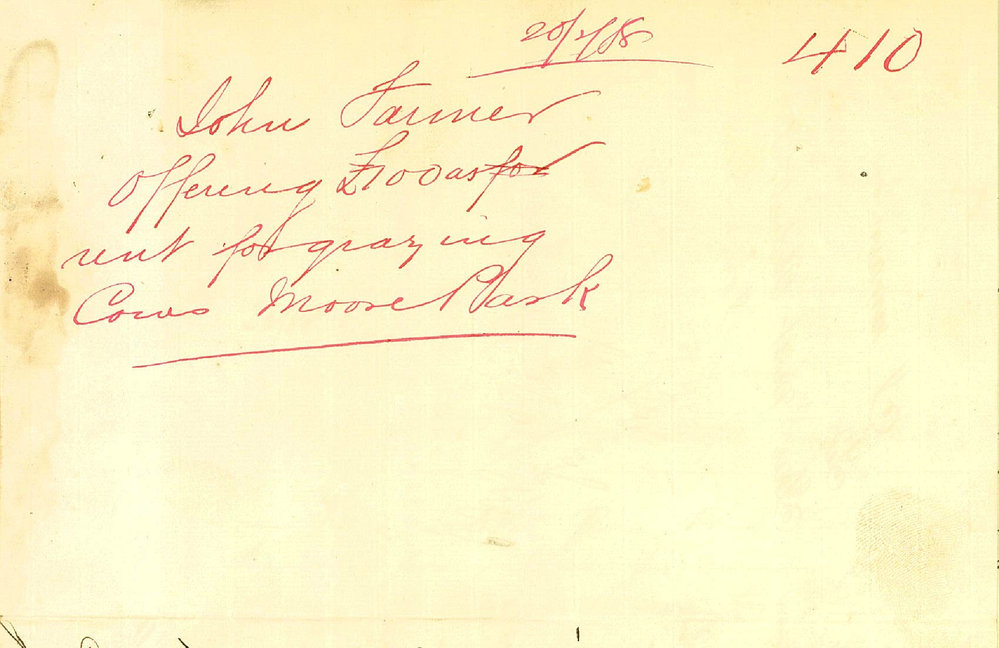 410
John Farmer
Offering £100 as for
rent for grazing
Cows Moore Park